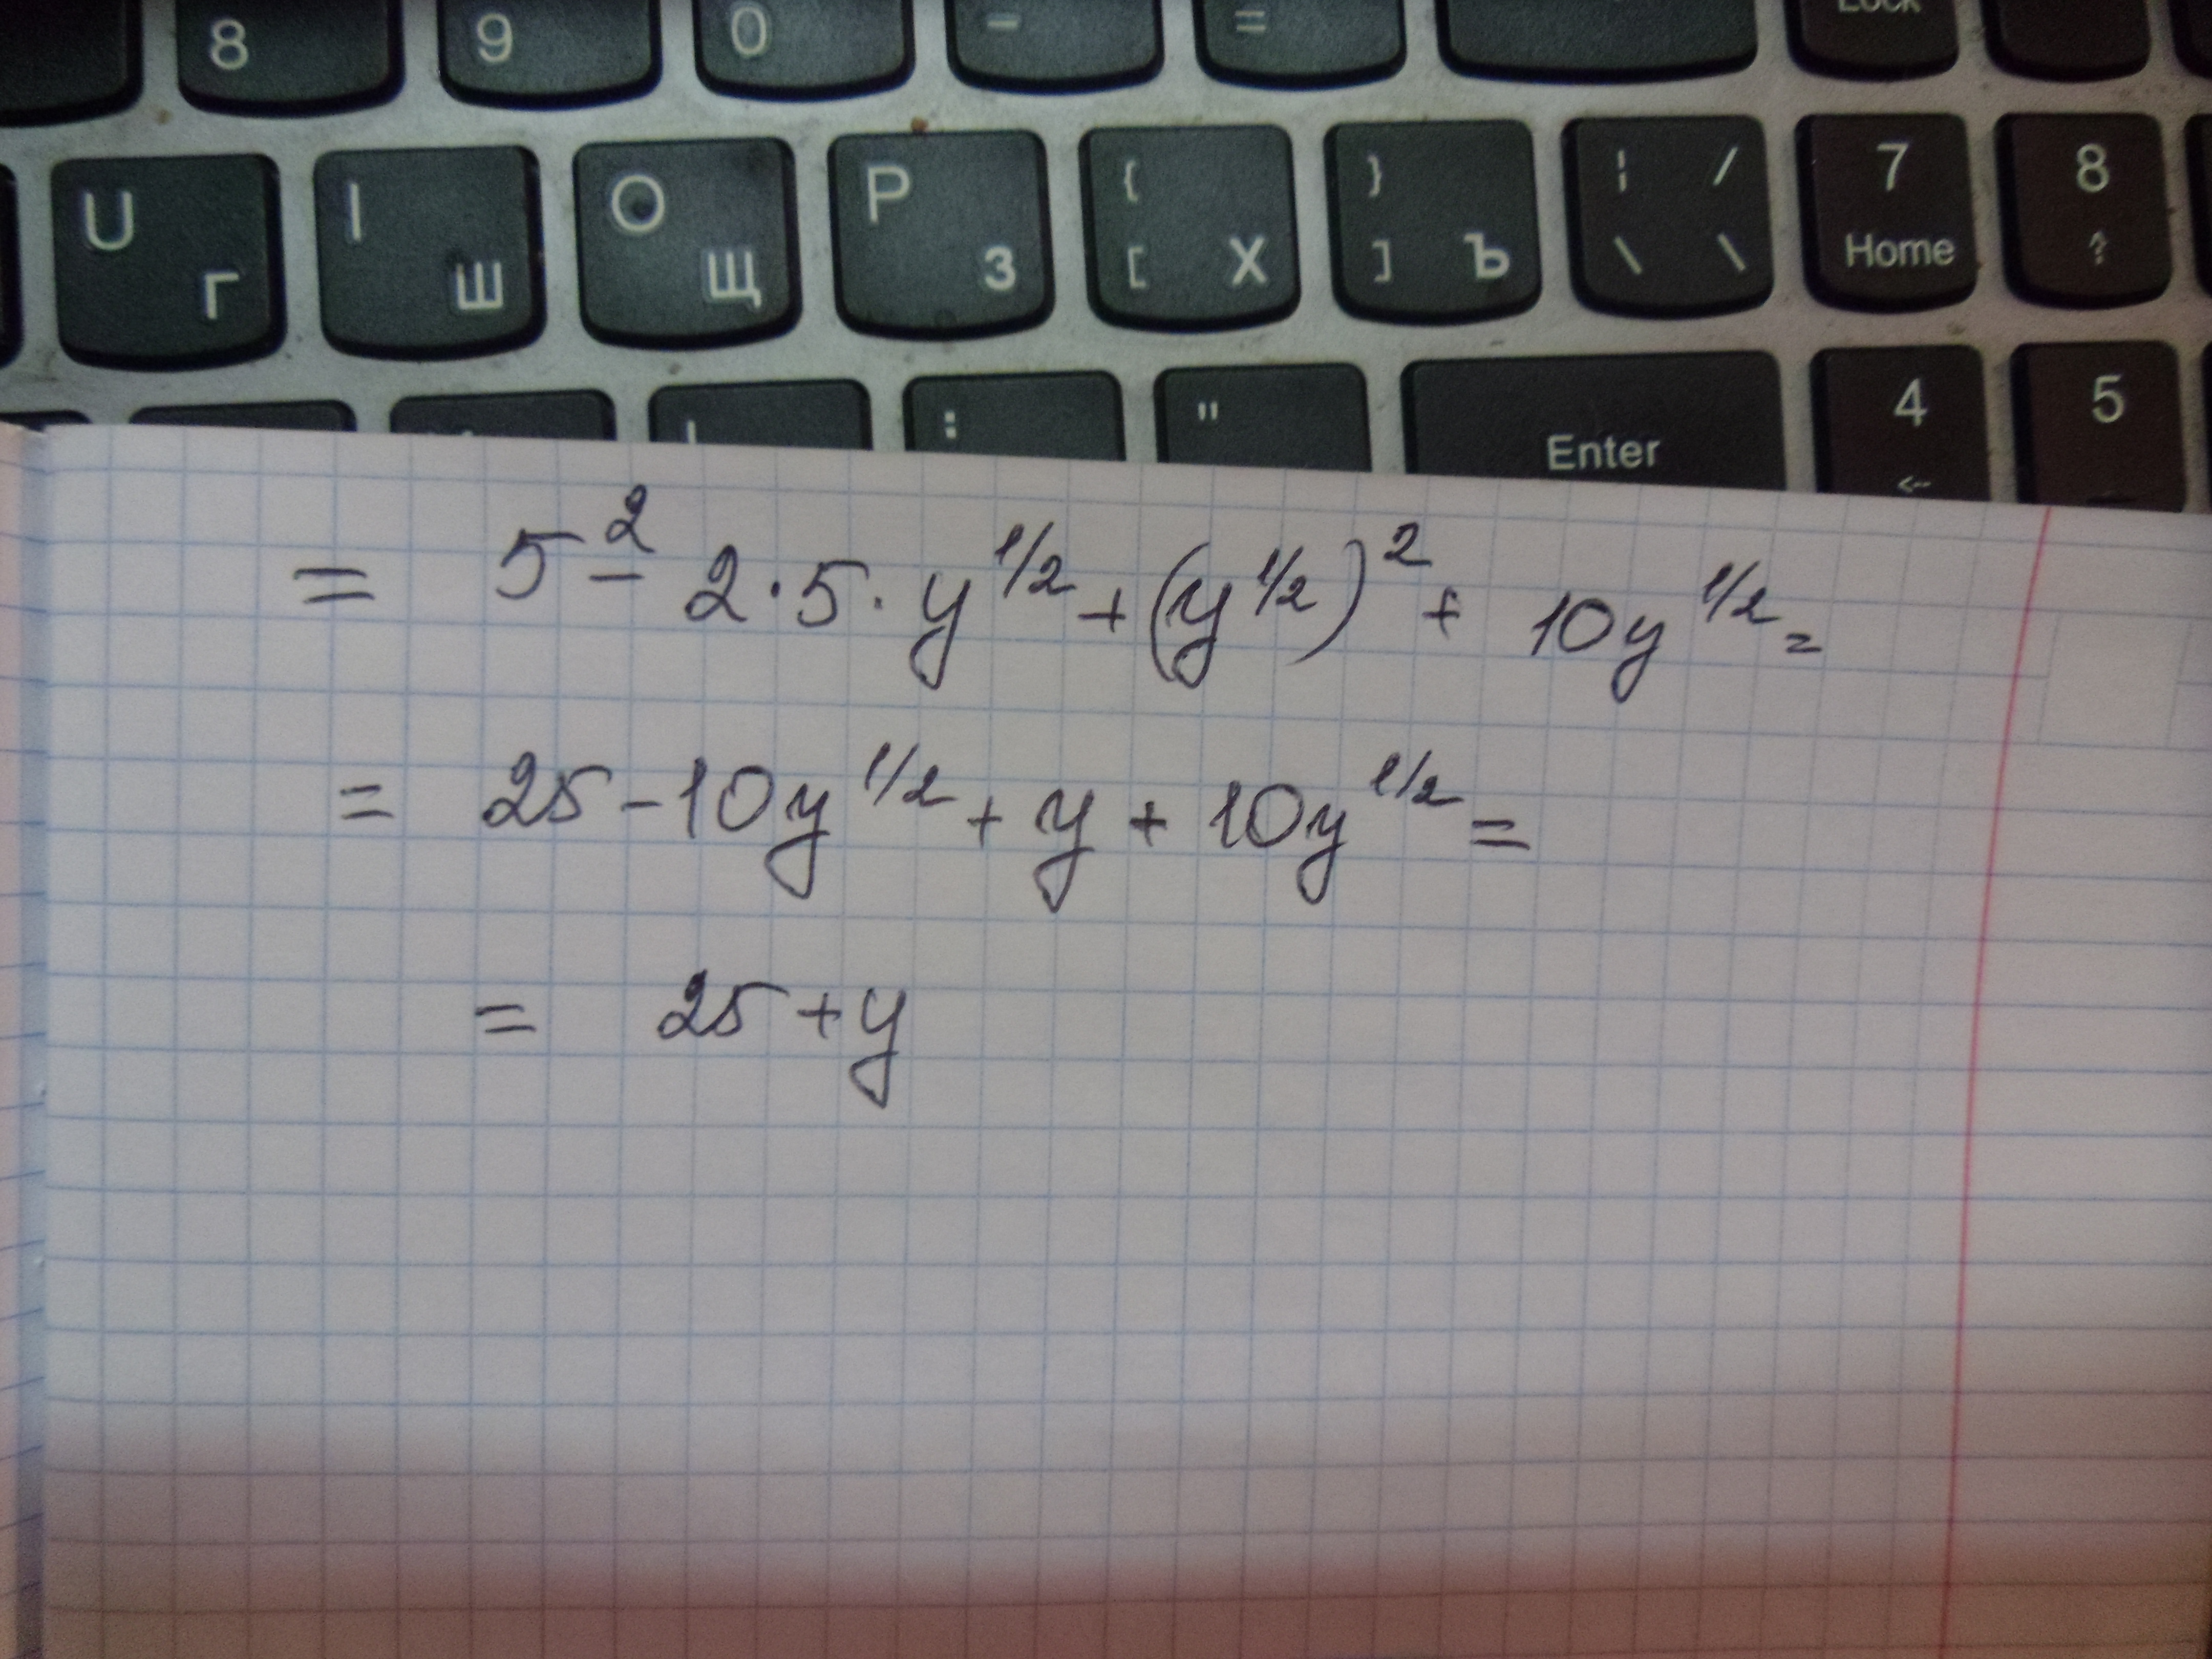 8 9 0 - = Lock
U Г I Ш O Щ P З { [ Х } ] Ъ ¦ / \ \ 7 Home 8
: " Enter 4 5
= 5² - 2·5·y^1/2 + (y^1/2)² + 10y^1/2 =
= 25 - 10y^1/2 + y + 10y^1/2 =
= 25 + y